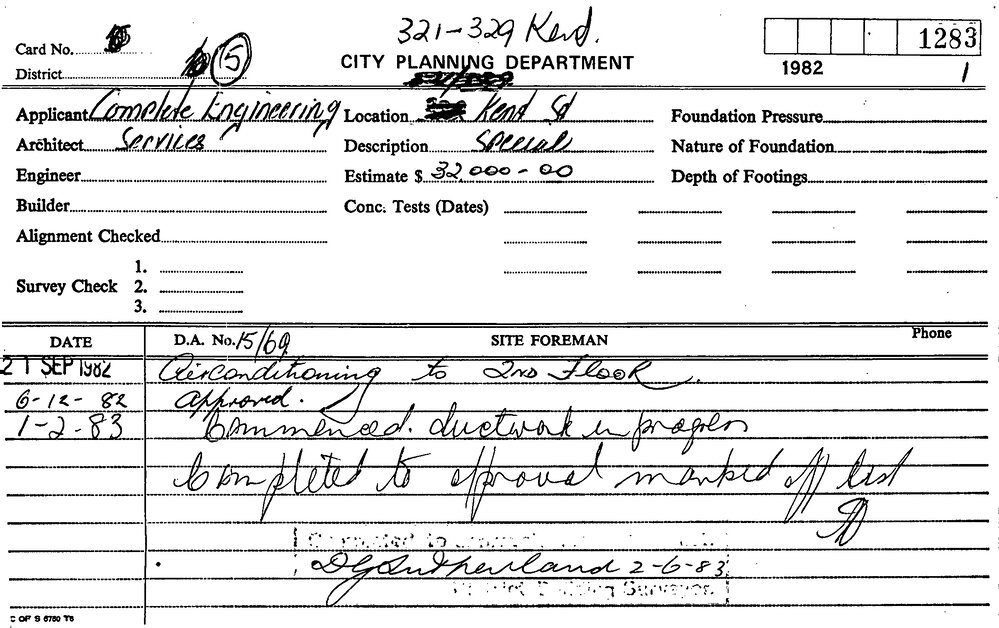 321-329 Kend.
1283
Card No.
District 15
CITY PLANNING DEPARTMENT
1982 1
Applicant Complete Engineering
Location Kent St
Foundation Pressure
Architect Services
Description Special
Nature of Foundation
Engineer
Estimate $ 32,000-00
Depth of Footings
Builder
Conc. Tests (Dates)
Alignment Checked
1.
Survey Check 2.
3.
DATE D.A. No. 15/69 SITE FOREMAN Phone
21 SEP 1982 Airconditioning to 2nd Floor.
6-12-82 Approved.
1-2-83 Commenced. ductwork in progress
Completed to approval marked off list
Completed to
D G Sutherland 2-6-83
Building Surveyor
C OF S 6760 T6